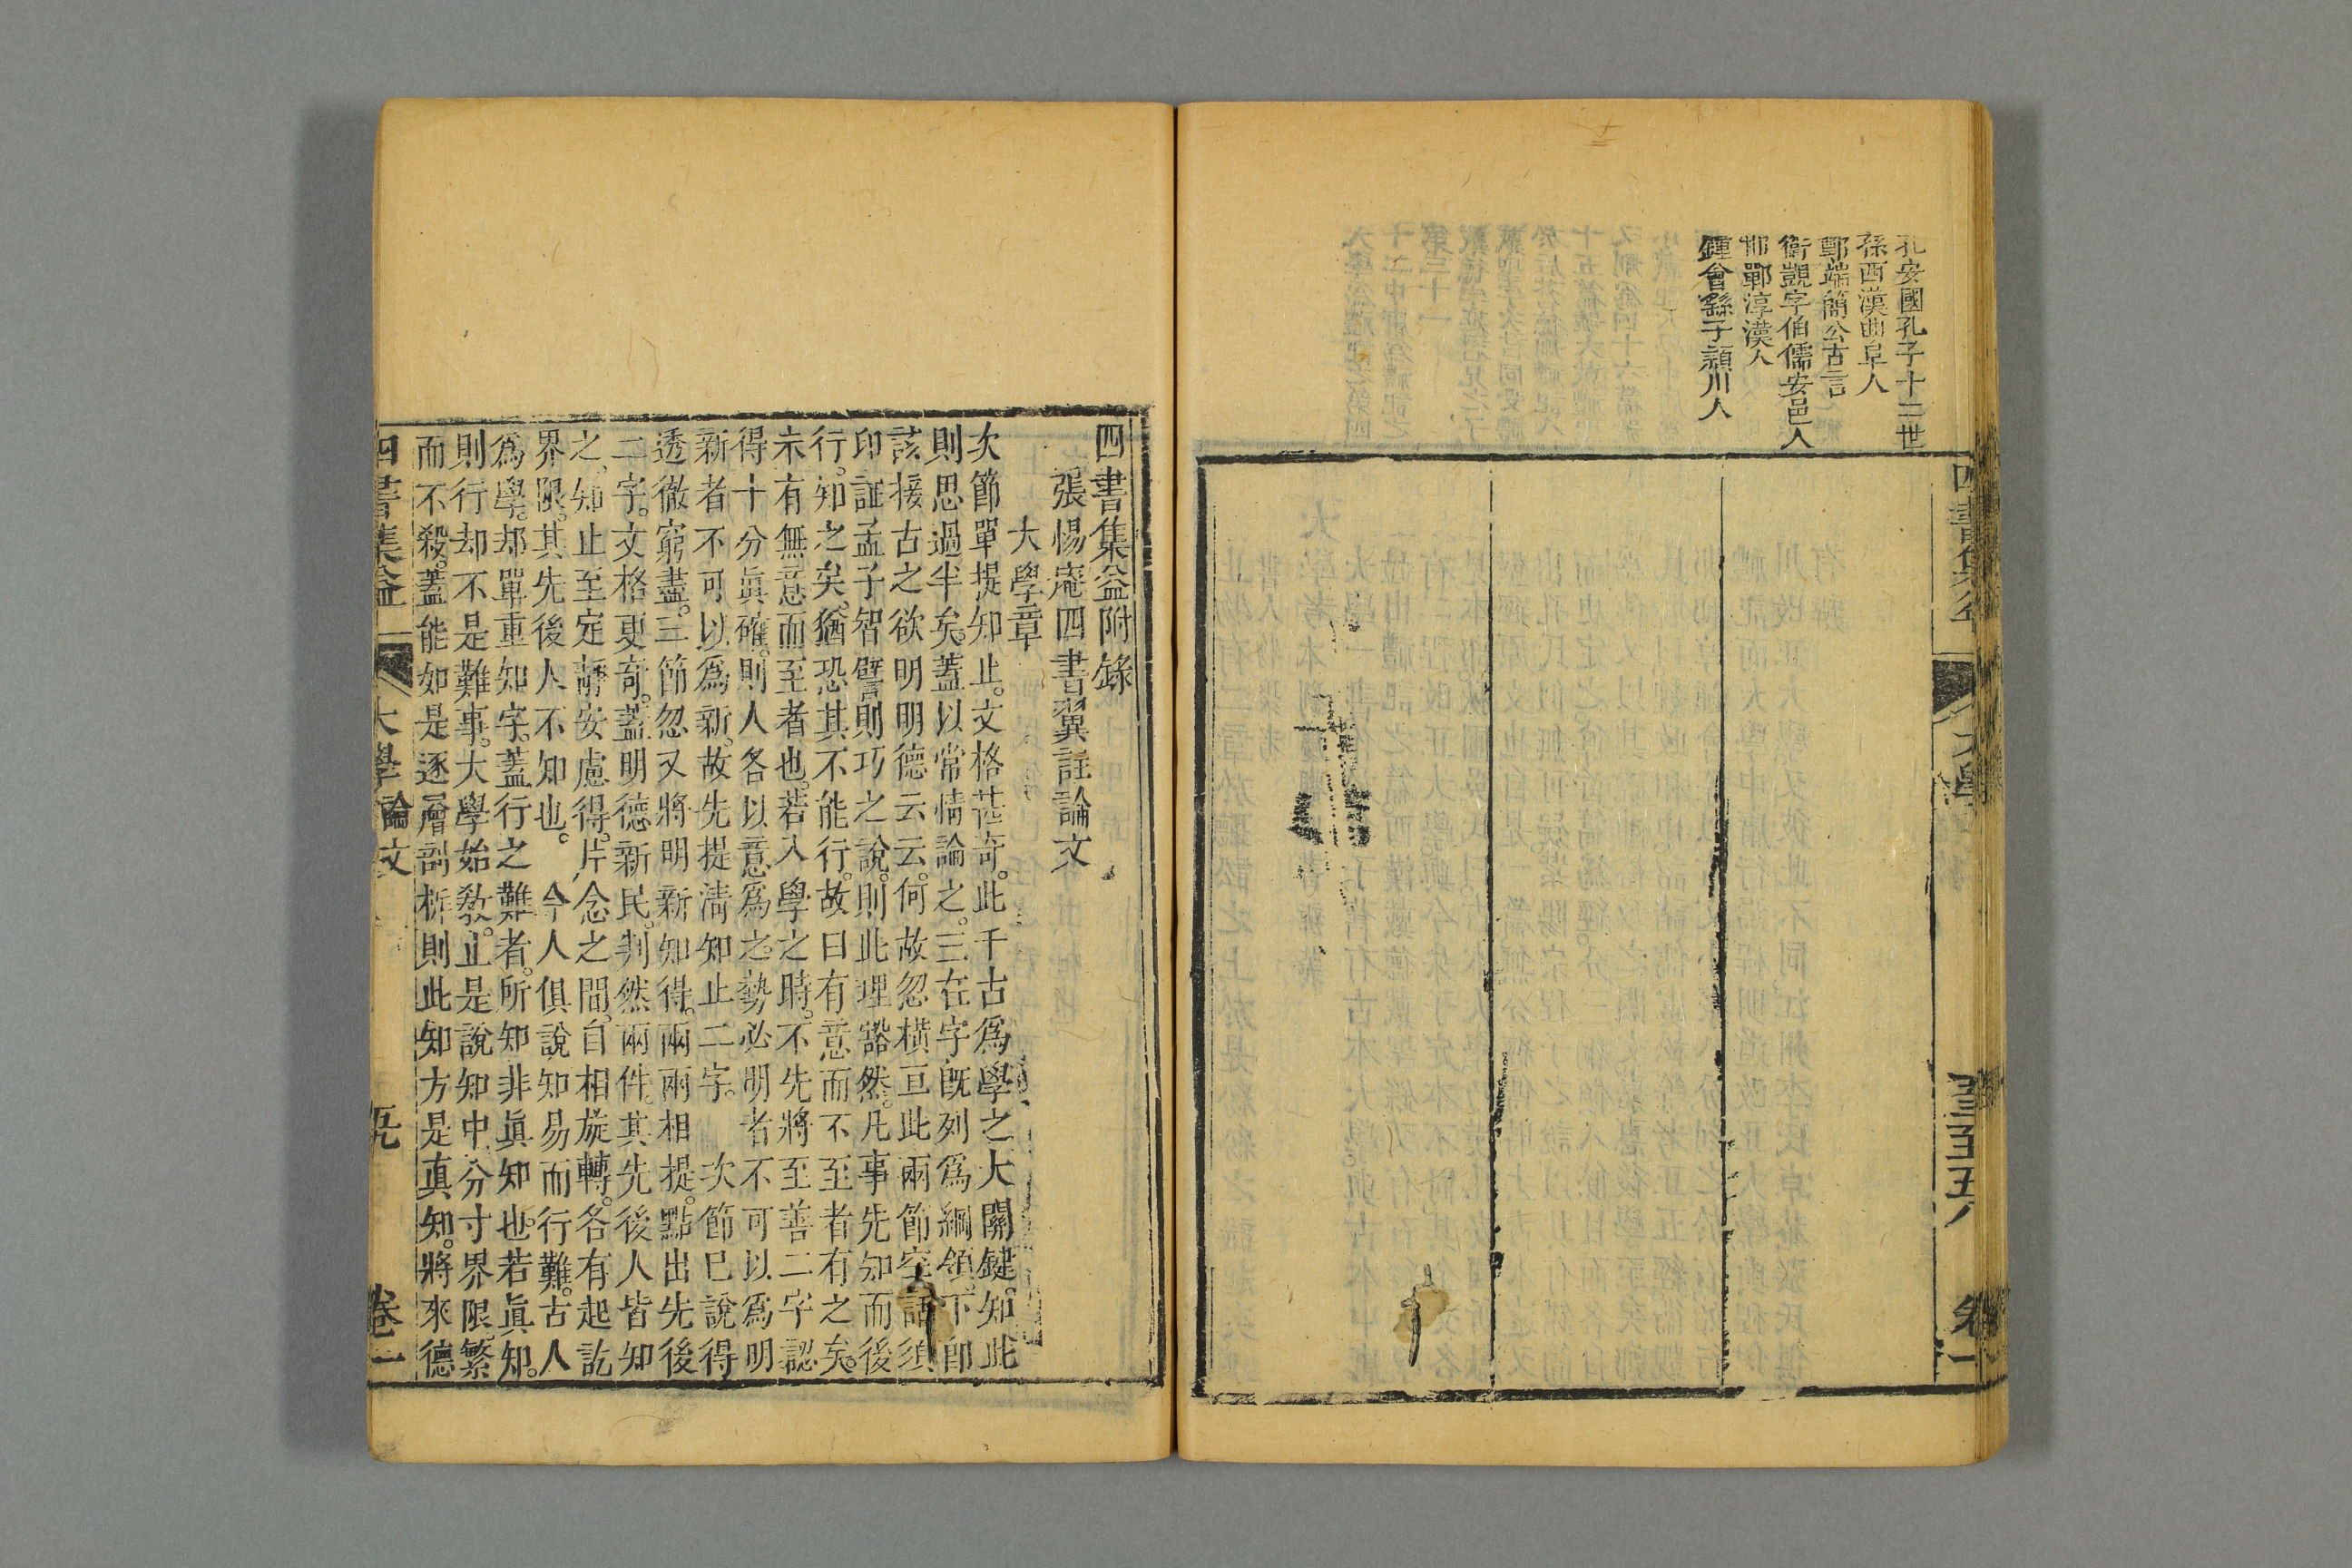 孔安國孔子十二世
孫西漢曲阜人
鄭端簡公古言
衛覬字伯儒安邑人
邯鄲淳漢人
鍾會繇子潁川人
四書集益附錄
張惕庵四書翼註論文
大學章
次節單提知止。文格甚奇。此千古為學之大關鍵。知此
則思過半矣。蓋以常情論之。三在字既列為綱領。下即
該接古之欲明明德云云。何故忽橫亘此兩節空話須
印証孟子智譬則巧之說。則此理豁然。凡事先知而後
行。知之矣。猶恐其不能行。故曰有意而不至者有之矣。
未有無意而至者也。若入學之時。不先將至善二字認
得十分眞確。則人各以意為之。勢必明者不可以為明
新者不可以為新。故先提清知止二字。　次節已說得
透徹窮盡。三節忽又將明新知得。兩兩相提。點出先後
二字。文格更奇。蓋明德新民。判然兩件。其先後人皆知
之、知止至定靜安慮得。片念之間。自相旋轉。各有起訖
界限。其先後人不知也。　今人俱說知易而行難。古人
為學。却單重知字。蓋行之難者。所知非眞知也。若眞知。
則行却不是難事。大學始教。止是說知中分寸界限。繁
而不殺。蓋能如是逐層剖析。則此知方是眞知。將來德
四書集益　大學論文　卷一